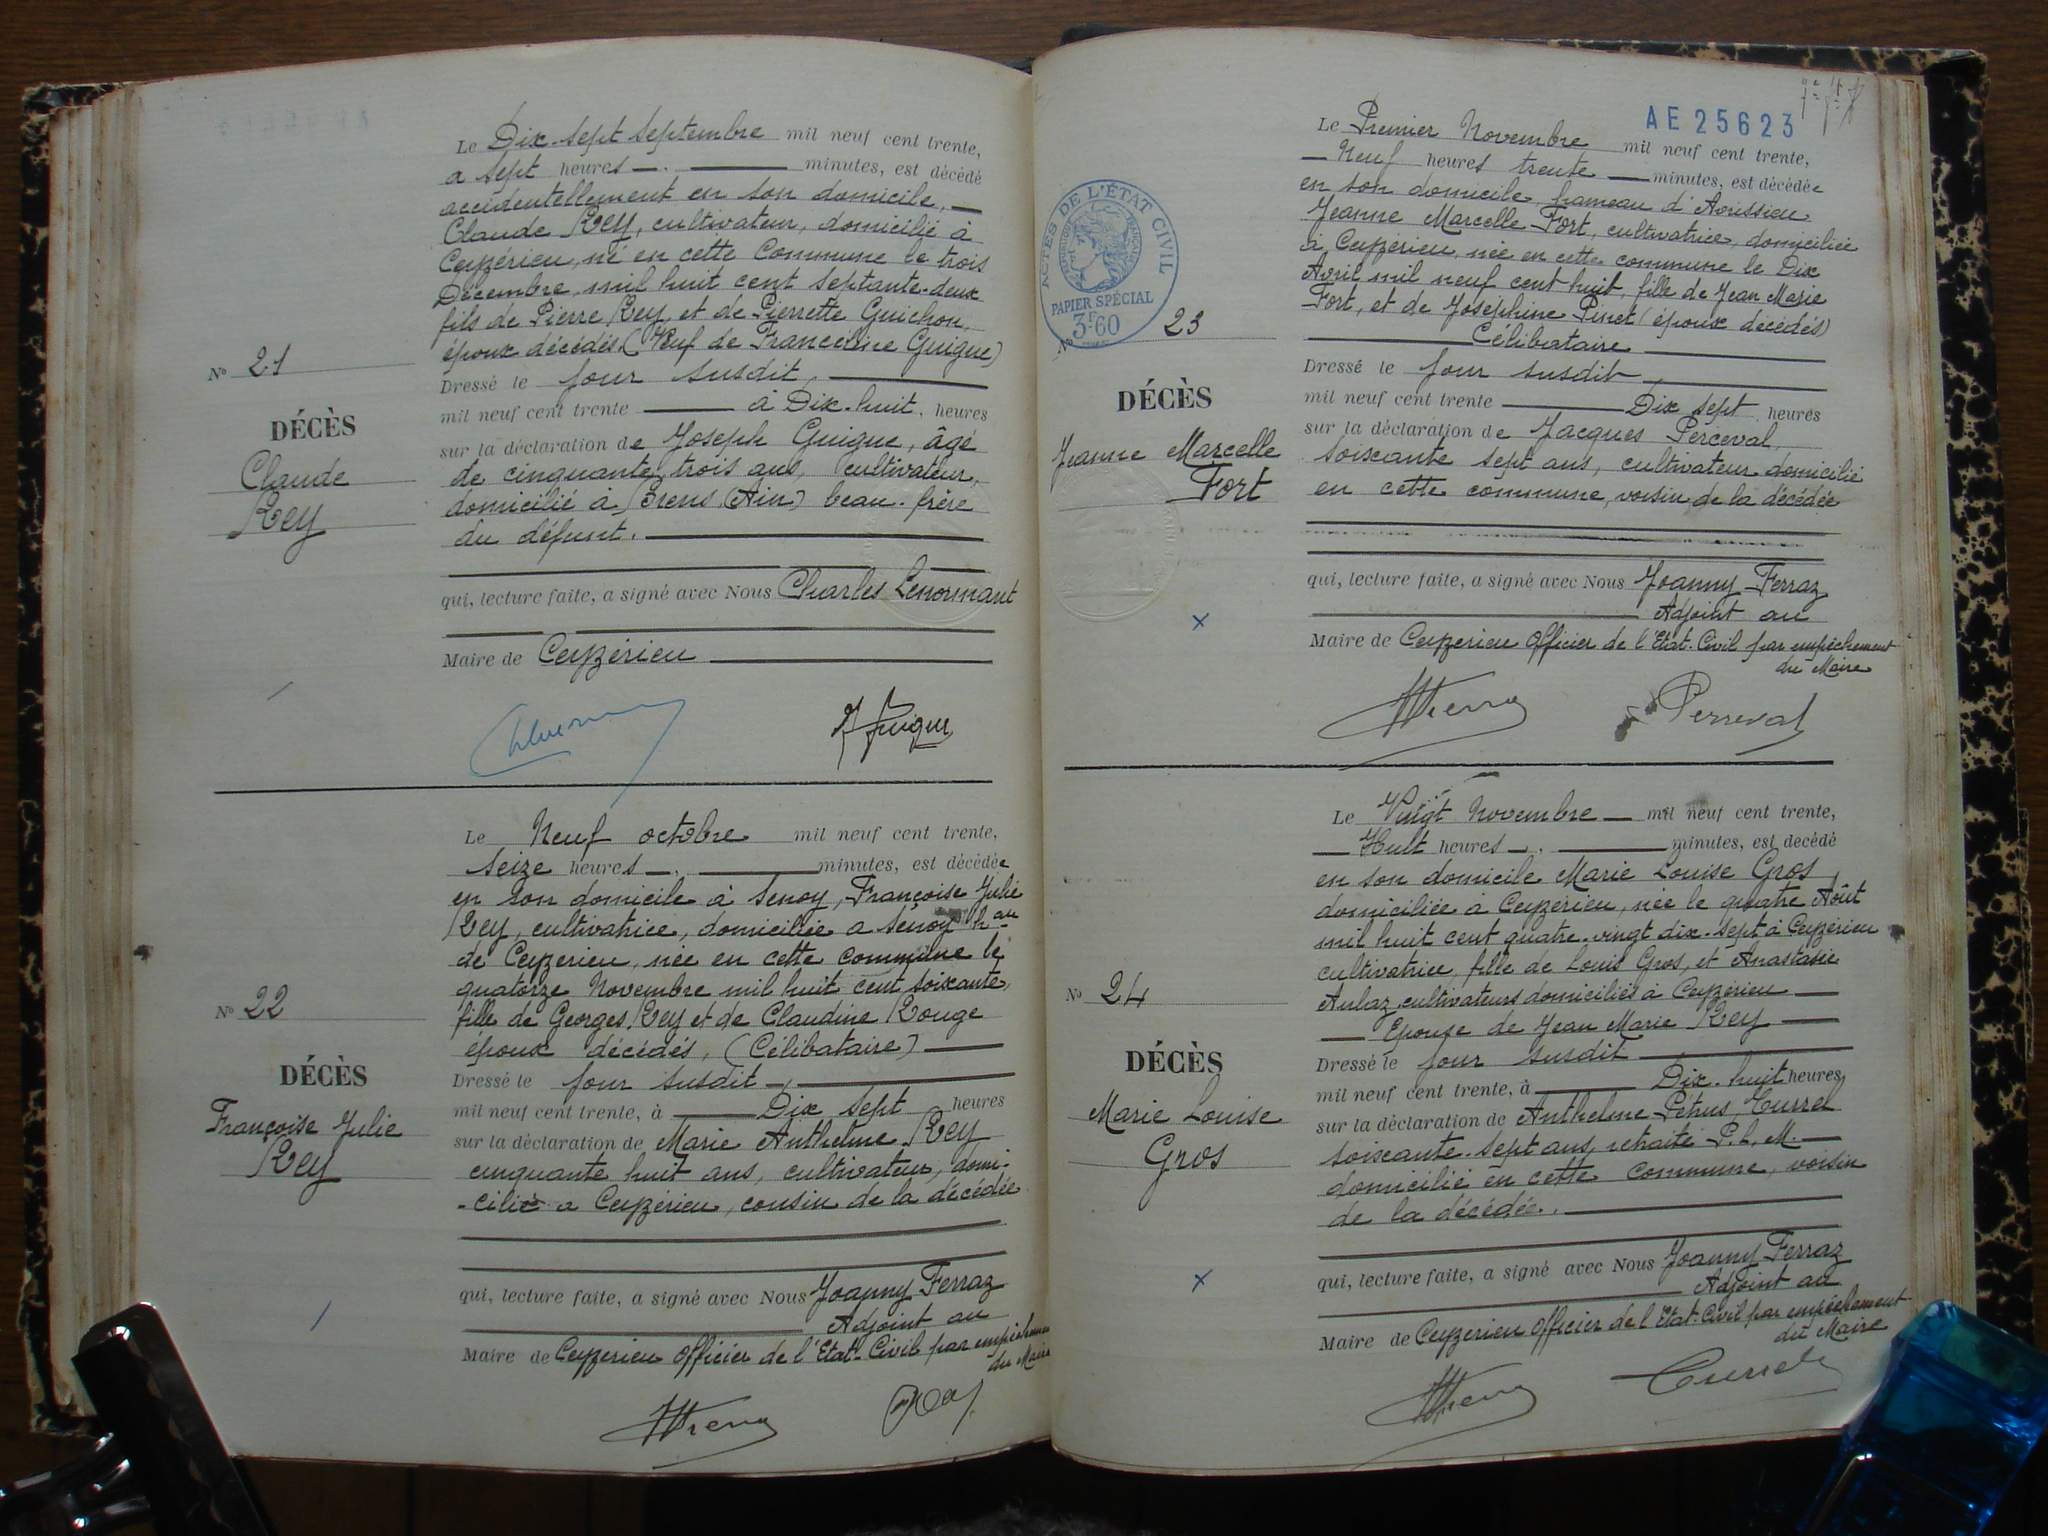 Le Dix-sept septembre mil neuf cent trente,
a sept heures minutes, est décédé
accidentellement en son domicile,
Claude Rey, cultivateur, domicilié à
Ceyzérieu, né en cette Commune le trois
Décembre, mil huit cent septante-deux
fils de Pierre Rey et de Pierrette Guichon,
époux décédés (Veuf de Francéline Guigue)
Nº 21
Dressé le jour susdit,
mil neuf cent trente à Dix-huit, heures
DÉCÈS
sur la déclaration de Joseph Guigue, âgé
Claude
de cinquante trois ans, cultivateur,
Rey
domicilié à Brens (Ain) beau-frère
du défunt.
qui, lecture faite, a signé avec Nous Charles Lenormant
Maire de Ceyzérieu
J Guigue
Le Neuf octobre mil neuf cent trente,
seize heures minutes, est décédée
en son domicile à Senoy, Françoise Julie
Rey, cultivatrice, domiciliée a Senoy hau
de Ceyzerieu, née en cette commune le
quatorze Novembre mil huit cent soixante,
Nº 22
fille de Georges Rey et de Claudine Rouge
époux décédés, (Célibataire)
DÉCÈS
Dressé le jour susdit
Françoise Julie
mil neuf cent trente, à Dix sept heures
Rey
sur la déclaration de Marie Anthelme Rey
cinquante huit ans, cultivateur, domi-
-cilié a Ceyzérieu, cousin de la décédée
qui, lecture faite, a signé avec Nous Joanny Ferraz
Adjoint au
Maire de Ceyzerieu Officier de l'Etat-Civil par empêchement
du Maire
Rey
AE 25623
Le Premier Novembre mil neuf cent trente,
Neuf heures trente minutes, est décédée
en son domicile, hameau d'Avrissieu
Jeanne Marcelle Fort, cultivatrice, domiciliée
à Ceyzérieu, née en cette commune le Dix
Avril mil neuf cent huit, fille de Jean Marie
Fort, et de Joséphine Pinet (époux décédés)
Célibataire
ACTES DE L'ÉTAT CIVIL
RÉPUBLIQUE FRANÇAISE
PAPIER SPÉCIAL
3F60
Nº 23
Dressé le jour susdit
mil neuf cent trente Dix sept heures
DÉCÈS
sur la déclaration de Jacques Perceval,
Jeanne Marcelle
soixante sept ans, cultivateur domicilié
Fort
en cette commune, voisin de la décédée
qui, lecture faite, a signé avec Nous Joanny-Ferraz
Adjoint au
Maire de Ceyzerieu Officier de l'Etat-Civil par empêchement
du Maire
Perreval
Le Vingt Novembre mil neuf cent trente,
Huit heures minutes, est decédé
en son domicile Marie Louise Gros
domiciliée a Ceyzérieu, née le quatre Août
mil huit cent quatre-vingt dix-sept à Ceyzérieu
cultivatrice, fille de Louis Gros, et Anastasie
Nº 24
Aubaz cultivateurs domiciliés à Ceyzérieu
Epouse de Jean Marie Rey
DÉCÈS
Dressé le jour susdit
Marie Louise
mil neuf cent trente, à Dix-huit heures
Gros
sur la déclaration de Anthelme Pétrus Currel
soixante-sept ans, retraité P.L.M.
domicilié en cette commune, voisin
de la décédée.
qui, lecture faite, a signé avec Nous Joanny Ferraz
Adjoint au
Maire de Ceyzerieu Officier de l'Etat-Civil par empêchement
du Maire
Currel